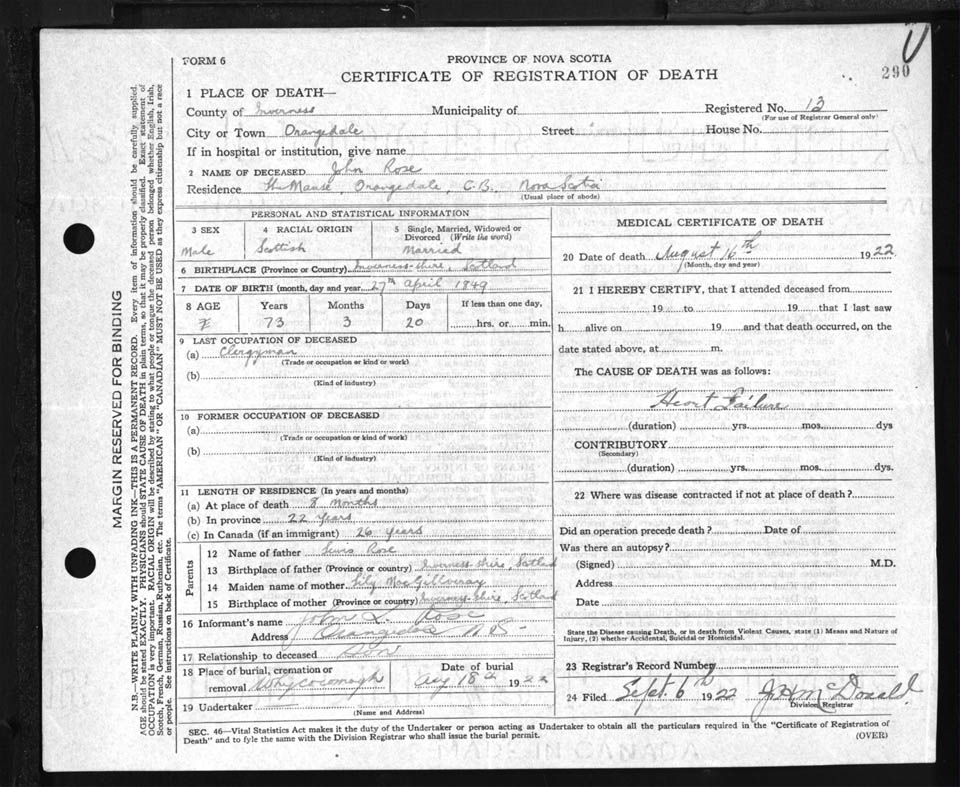 FORM 6
PROVINCE OF NOVA SCOTIA
290
CERTIFICATE OF REGISTRATION OF DEATH
1 PLACE OF DEATH—
County of Inverness Municipality of Registered No. 13
(For use of Registrar General only)
City or Town Orangedale Street House No.
If in hospital or institution, give name
2 NAME OF DECEASED John Rose
Residence The Manse, Orangedale, C.B., Nova Scotia
(Usual place of abode)
PERSONAL AND STATISTICAL INFORMATION
3 SEX 4 RACIAL ORIGIN 5 Single, Married, Widowed or Divorced (Write the word)
Male Scottish Married
6 BIRTHPLACE (Province or Country) Inverness-shire, Scotland
7 DATE OF BIRTH (month, day and year) 27th April 1849
8 AGE Years Months Days If less than one day,
73 3 20 hrs. or min.
9 LAST OCCUPATION OF DECEASED
(a) Clergyman
(Trade or occupation or kind or work)
(b)
(Kind of industry)
10 FORMER OCCUPATION OF DECEASED
(a)
(Trade or occupation or kind of work)
(b)
(Kind of industry)
11 LENGTH OF RESIDENCE (In years and months)
(a) At place of death 8 Months
(b) In province 22 Years
(c) In Canada (if an immigrant) 26 years
Parents
12 Name of father Rose
13 Birthplace of father (Province or country) Inverness-shire, Scotland
14 Maiden name of mother MacGillivray
15 Birthplace of mother (Province or country) Inverness-shire, Scotland
16 Informant's name John Rose
Address Orangedale N.S.
17 Relationship to deceased Son
18 Place of burial, cremation or Date of burial
removal Whycocomagh Aug 18th 1922
19 Undertaker
(Name and Address)
MEDICAL CERTIFICATE OF DEATH
20 Date of death August 16th 1922
(Month, day and year)
21 I HEREBY CERTIFY, that I attended deceased from
19 to 19 that I last saw
h alive on 19 and that death occurred, on the
date stated above, at m.
The CAUSE OF DEATH was as follows:
Heart Failure
(duration) yrs. mos. dys
CONTRIBUTORY
(Secondary)
(duration) yrs. mos. dys.
22 Where was disease contracted if not at place of death?
Did an operation precede death? Date of
Was there an autopsy?
(Signed) M.D.
Address
Date
State the Disease causing Death, or in death from Violent Causes, state (1) Means and Nature of
Injury, (2) whether Accidental, Suicidal or Homicidal.
23 Registrar's Record Number
24 Filed Sept. 6th 1922 McDonald
Division Registrar
SEC. 46—Vital Statistics Act makes it the duty of the Undertaker or person acting as Undertaker to obtain all the particulars required in the "Certificate of Registration of
Death" and to fyle the same with the Division Registrar who shall issue the burial permit.
(OVER)
MARGIN RESERVED FOR BINDING
N.B.—WRITE PLAINLY WITH UNFADING INK—THIS IS A PERMANENT RECORD. Every item of information should be carefully supplied.
AGE should be stated EXACTLY. PHYSICIANS should STATE CAUSE OF DEATH in plain terms, so that it may be properly classified. Exact statement of
OCCUPATION is very important. RACIAL ORIGIN will be described by stating to what people or tongue the deceased person belonged whether English, Irish,
Scotch, French, German, Russian, Ruthenian, etc. The terms "AMERICAN" OR "CANADIAN" MUST NOT BE USED as they express citizenship but not a race
or people. See instructions on back of Certificate.